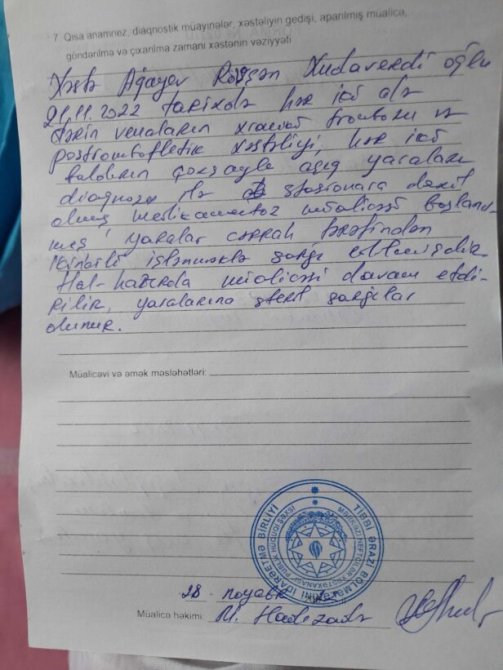 7. Qısa anamnez, diaqnostik müayinələr, xəstəliyin gedişi, aparılmış müalicə,
göndərilmə və çıxarılma zamanı xəstənin vəziyyəti
Xəstə Ağayev Rövşən Xudaverdi oğlu
21.11.2022 tarixdə hər iki alt
dərin venaların xroniki trombozu və
posttromboflebitik xəstəliyi, hər iki
baldırın çoxsaylı açıq yaraları
diaqnozu ilə stasionara daxil
olmuş medikamentoz müalicəsi başlanıl-
mış, yaralar cərrah tərəfindən
işlənməklə sarğı edilmişdir.
Hal-hazırda müalicəsi davam etdi-
rilir, yaralarına steril sarğılar
olunur.
Müalicəvi və əmək məsləhətləri:
TİBBİ ƏRAZİ BÖLMƏLƏRİNİ İDARƏETMƏ BİRLİYİ
28 noyabr
Müalicə həkimi: